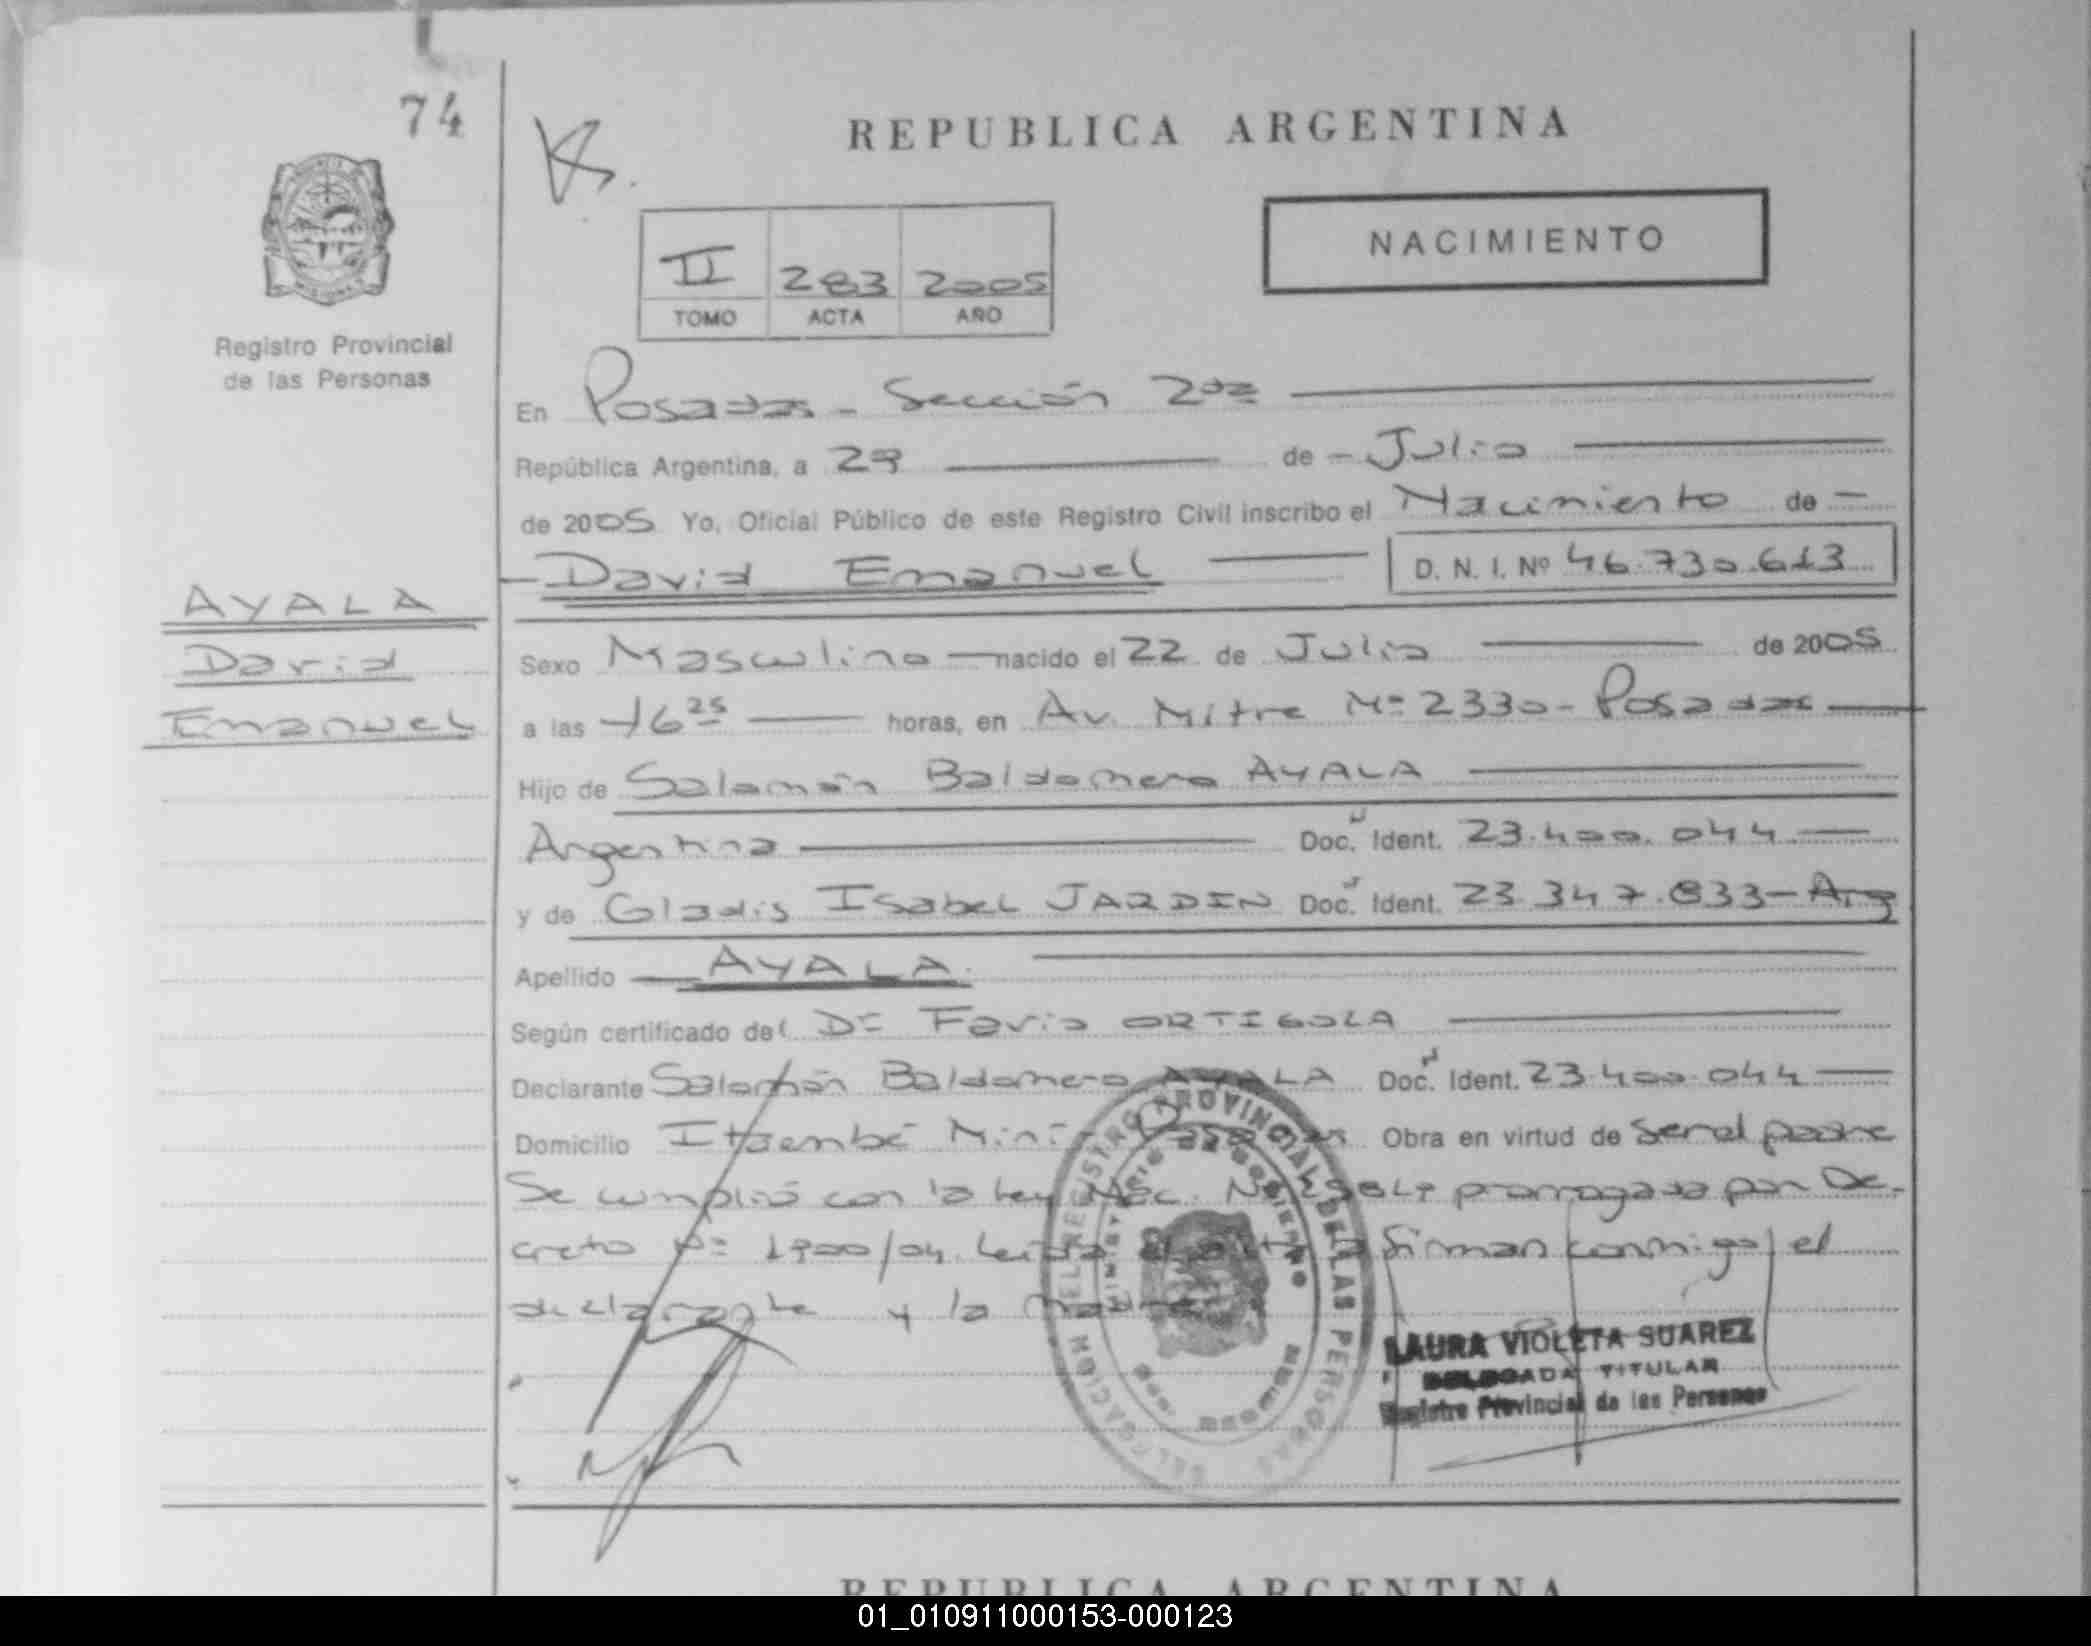 74
REPUBLICA ARGENTINA
NACIMIENTO
II 283 2005
TOMO ACTA AÑO
Registro Provincial
de las Personas
En Posadas - Sección 2da
República Argentina, a 29 de - Julio
de 2005 Yo, Oficial Público de este Registro Civil inscribo el Nacimiento de -
- David Emanuel D. N. I. Nº 46.730.613
AYALA
David
Emanuel
Sexo Masculino - nacido el 22 de Julio de 2005
a las 16 25 horas, en Av. Mitre Nº 2330 - Posadas
Hijo de Salomón Baldomero AYALA
Argentina Doc. Ident. 23.400.044
y de Gladis Isabel JARDIN Doc. Ident. 23.347.833 - Arg
Apellido AYALA
Según certificado del Dr Favio ORTIGOZA
Declarante Salomón Baldomero AYALA Doc. Ident. 23.400.044
Domicilio Itaembé Miní Posadas Obra en virtud de ser el padre
Se cumplió con la Ley Nac. Nº prorrogada por De-
creto Nº 1900/04. Leída el acta firman conmigo el
declarante y la madre
DELEGACIÓN DEL REGISTRO PROVINCIAL DE LAS PERSONAS
MINISTERIO DE GOBIERNO
LAURA VIOLETA SUAREZ
DELEGADA TITULAR
Registro Provincial de las Personas
REPUBLICA ARGENTINA
01_010911000153-000123